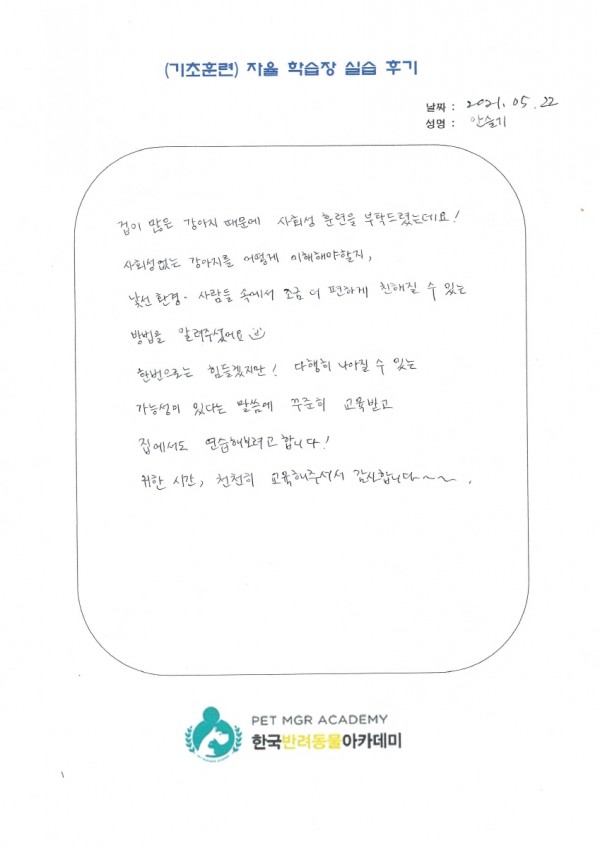 (기초훈련) 자율 학습장 실습 후기
날짜 : 2021. 05. 22
성명 : 안슬기
겁이 많은 강아지 때문에 사회성 훈련을 부탁드렸는데요!
사회성없는 강아지를 어떻게 이해해야할지,
낯선 환경 - 사람들 속에서 조금 더 편하게 친해질 수 있는
방법을 알려주셨어요
한번으로는 힘들겠지만! 다행히 나아질 수 있는
가능성이 있다는 말씀에 꾸준히 교육받고
집에서도 연습해보려고합니다!
귀한 시간, 천천히 교육해주셔서 감사합니다~~.
PET MGR ACADEMY
한국반려동물아카데미